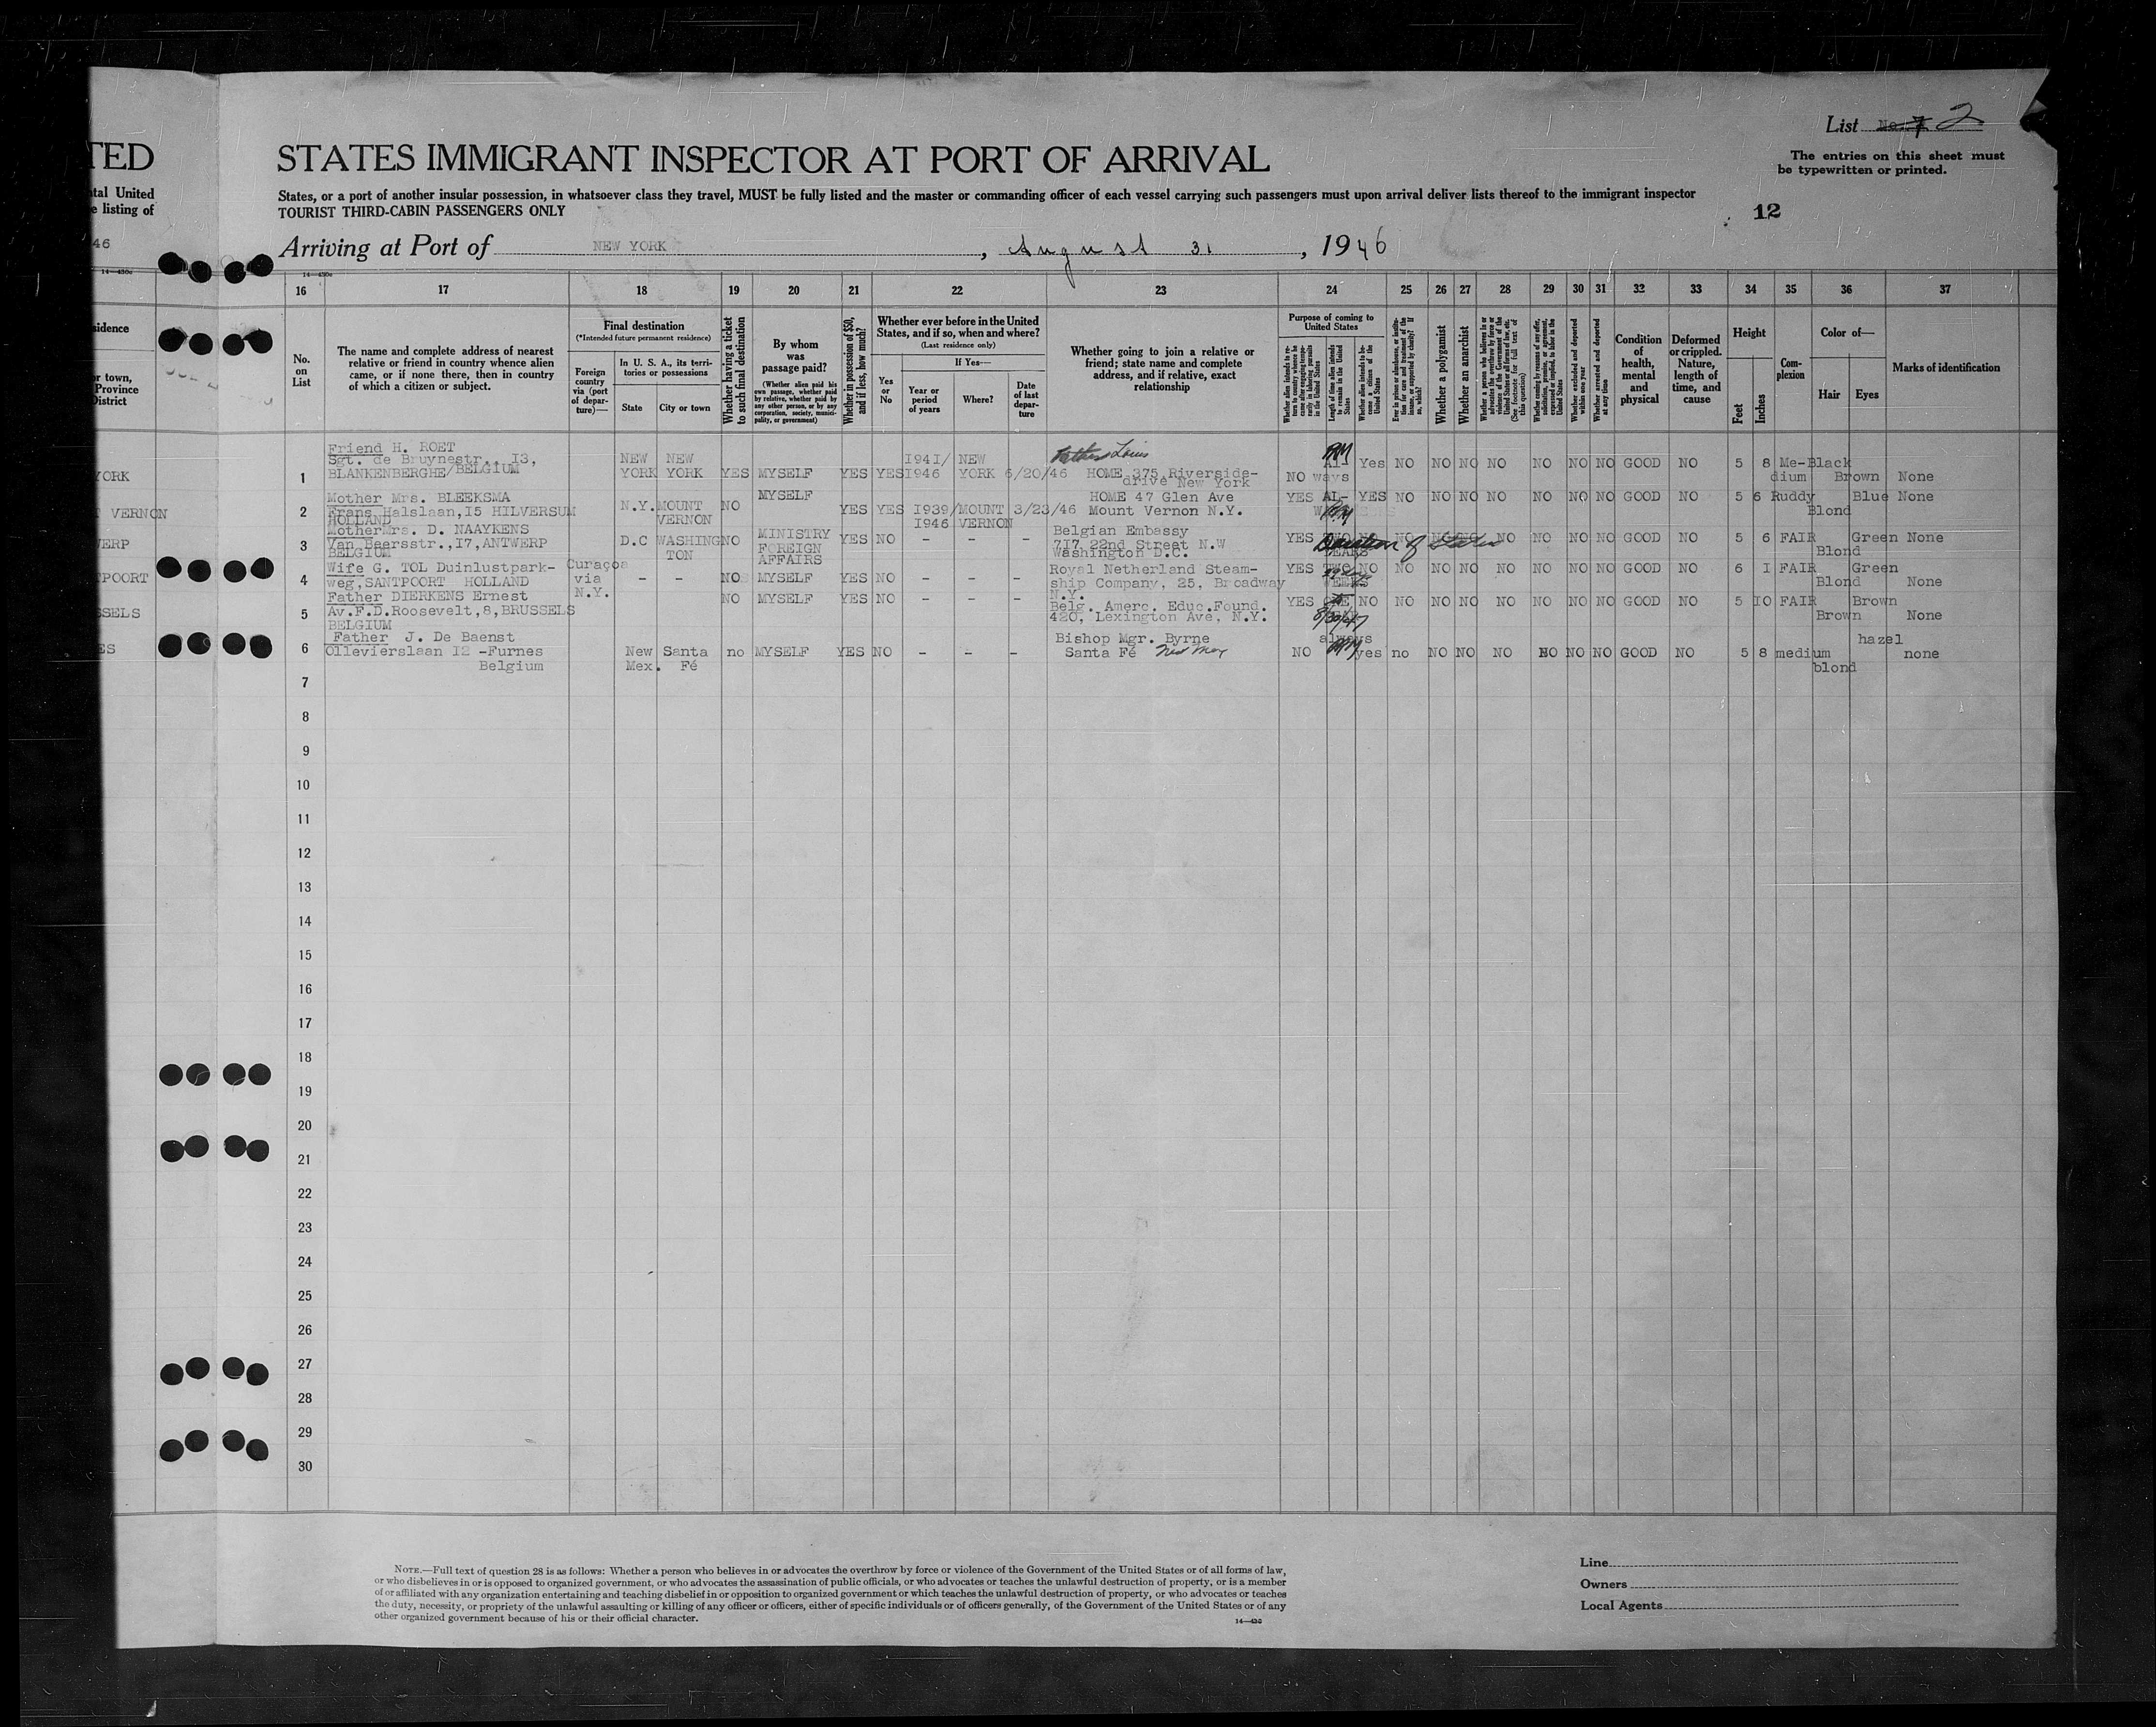 TED
STATES IMMIGRANT INSPECTOR AT PORT OF ARRIVAL
List No. 7 2
The entries on this sheet must
be typewritten or printed.
ntal United
e listing of
46
States, or a port of another insular possession, in whatsoever class they travel, MUST be fully listed and the master or commanding officer of each vessel carrying such passengers must upon arrival deliver lists thereof to the immigrant inspector
TOURIST THIRD-CABIN PASSENGERS ONLY
12
Arriving at Port of NEW YORK, August 31, 1946
16 17 18 19 20 21 22 23 24 25 26 27 28 29 30 31 32 33 34 35 36 37
No. on List
The name and complete address of nearest
relative or friend in country whence alien
came, or if none there, then in country
of which a citizen or subject.
Final destination
(*Intended future permanent residence)
Foreign country via (port of departure)—
In U. S. A., its territories or possessions
State
City or town
Whether having a ticket to such final destination
By whom was passage paid?
(Whether alien paid his own passage, whether paid by relative, whether paid by any other person, or by any corporation, society, municipality, or government)
Whether in possession of $50, and if less, how much?
Whether ever before in the United States, and if so, when and where?
(Last residence only)
Yes or No
If Yes—
Year or period of years
Where?
Date of last departure
Whether going to join a relative or
friend; state name and complete
address, and if relative, exact
relationship
Purpose of coming to United States
Length of time alien intends to remain in the United States
Whether alien intends to become a citizen of the United States
Whether a polygamist
Whether an anarchist
Whether excluded and deported within one year
Whether arrested and deported at any time
Condition of health, mental and physical
Deformed or crippled. Nature, length of time, and cause
Height
Feet
Inches
Complexion
Color of—
Hair
Eyes
Marks of identification
YORK
1 Friend H. ROET
Sgt. de Bruynestr., I3,
BLANKENBERGHE/BELGIUM
NEW YORK NEW YORK YES MYSELF YES YES I94I/I946 NEW YORK 6/20/46 Father Louis HOME 375 Riverside-drive New York NO Always Yes NO NO NO NO NO NO NO GOOD NO 5 8 Me-dium Black Brown None
VERNON
2 Mother Mrs. BLEEKSMA
Frans Halslaan,I5 HILVERSUM
HOLLAND
N.Y. MOUNT VERNON NO MYSELF YES YES I939/I946 MOUNT VERNON 3/23/46 HOME 47 Glen Ave Mount Vernon N.Y. YES AL- YES NO NO NO NO NO NO NO GOOD NO 5 6 Ruddy Blond Blue None
WERP
3 Mother Mrs. D. NAAYKENS
Van Beersstr.,I7,ANTWERP
BELGIUM
D.C WASHINGTON NO MINISTRY FOREIGN AFFAIRS YES NO - - - Belgian Embassy 7I7 22nd Street N.W Washington D.C. YES TWO YEARS Duration of Status NO NO NO NO NO NO NO NO GOOD NO 5 6 FAIR Blond Green None
TPOORT
4 Wife G. TOL Duinlustpark-
weg,SANTPOORT HOLLAND
Curaçoa via N.Y. - - NO MYSELF YES NO - - - Royal Netherland Steam-ship Company, 25, Broadway N.Y. YES TWO WEEKS NO NO NO NO NO NO NO NO GOOD NO 6 I FAIR Blond Green None
SSELS
5 Father DIERKENS Ernest
Av.F.D.Roosevelt,8,BRUSSELS
BELGIUM
NO MYSELF YES NO - - - Belg. Amerc. Educ.Found. 420, Lexington Ave, N.Y. YES ONE 8/30/47 NO NO NO NO NO NO NO NO GOOD NO 5 IO FAIR Brown Brown None
ES
6 Father J. De Baenst
Ollevierslaan I2 -Furnes
Belgium
New Mex. Santa Fé no MYSELF YES NO - - - Bishop Mgr. Byrne Santa Fé New Mex NO always yes no NO NO NO NO NO NO GOOD NO 5 8 medium blond hazel none
7
8
9
10
11
12
13
14
15
16
17
18
19
20
21
22
23
24
25
26
27
28
29
30
NOTE.—Full text of question 28 is as follows: Whether a person who believes in or advocates the overthrow by force or violence of the Government of the United States or of all forms of law,
or who disbelieves in or is opposed to organized government, or who advocates the assassination of public officials, or who advocates or teaches the unlawful destruction of property, or is a member
of or affiliated with any organization entertaining and teaching disbelief in or opposition to organized government or which teaches the unlawful destruction of property, or who advocates or teaches
the duty, necessity, or propriety of the unlawful assaulting or killing of any officer or officers, either of specific individuals or of officers generally, of the Government of the United States or of any
other organized government because of his or their official character.
14—430
Line
Owners
Local Agents